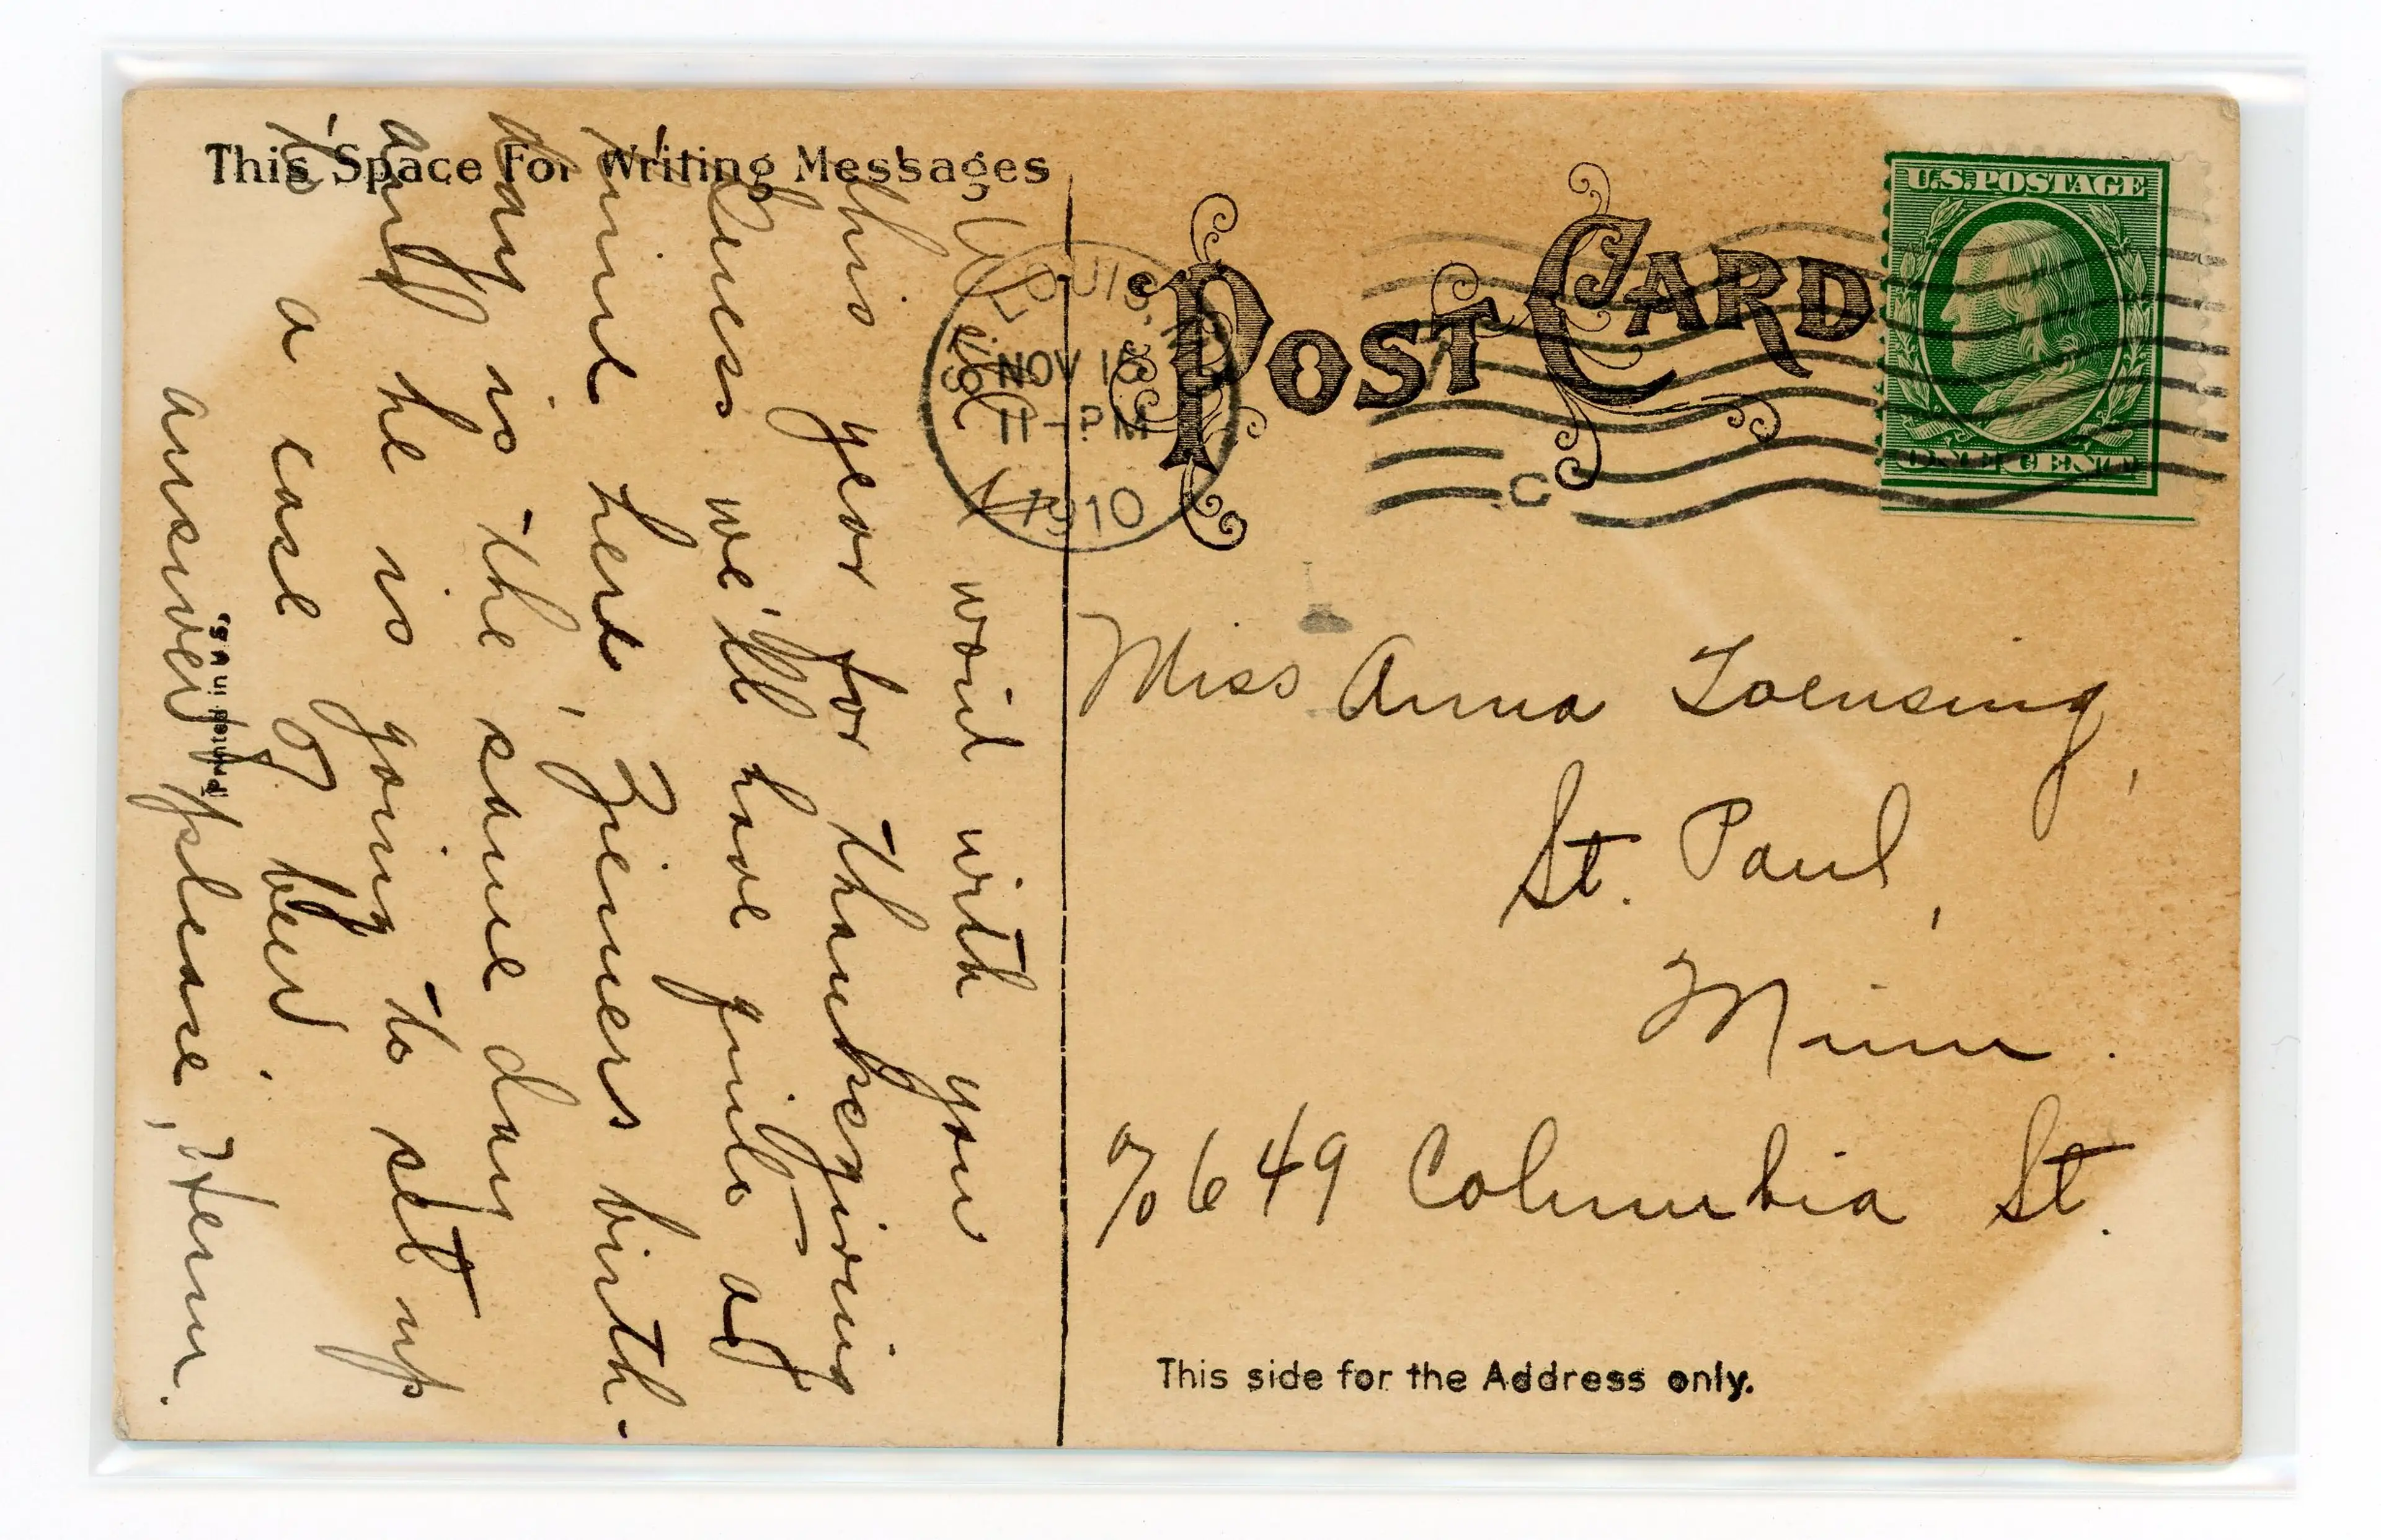 This Space For Writing Messages
with you
this year for thanksgiving –
Guess we'll have quite a
time here, Ziemers birth-
day is the same day
and he is going to set up
a case of beer.
answer please,
Printed in U.S.
POST CARD
LOUIS, MO
NOV 15
11-PM
1910
C
U.S. POSTAGE
ONE CENT
Miss Anna Loensing,
St. Paul,
Minn.
% 649 Columbia St.
This side for the Address only.